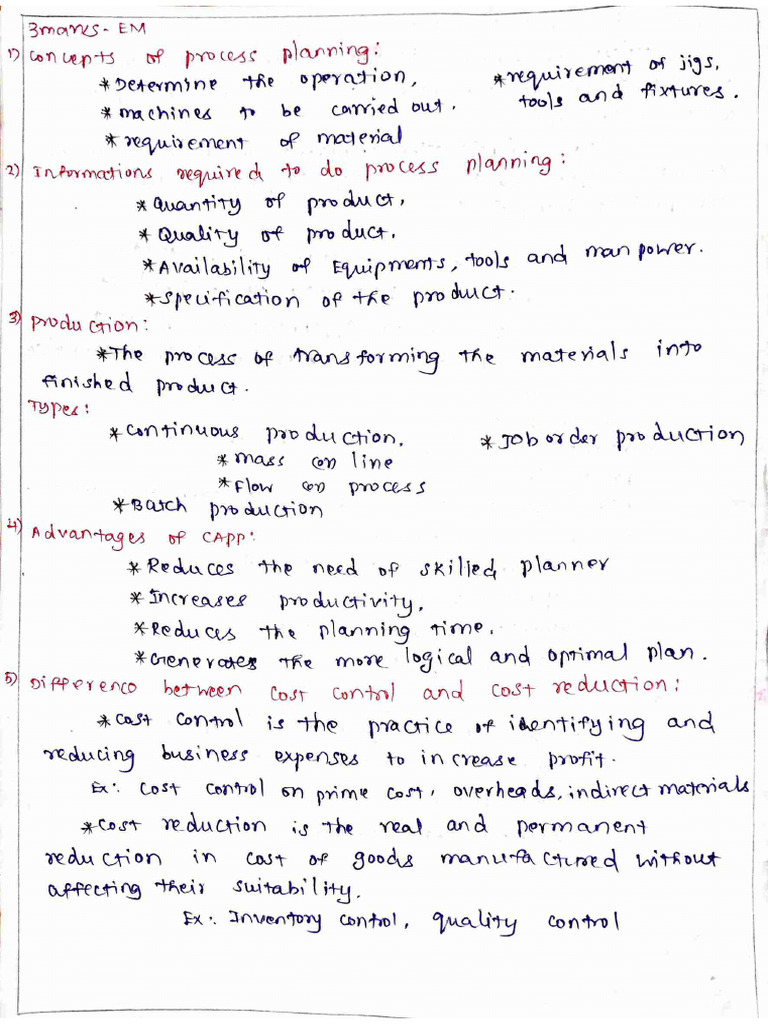 3marks - EM
1) Concepts of process planning:
* Determine the operation,
* machines to be carried out.
* requirement of material
* requirement of jigs,
tools and fixtures.
2) Informations required to do process planning:
* Quantity of product,
* Quality of product.
* Availability of Equipments, tools and man power.
* Specification of the product.
3) Production:
* The process of transforming the materials into
finished product.
Types:
* continuous production.
* Job order production
* mass (or) line
* flow (or) process
* Batch production
4) Advantages of CAPP:
* Reduces the need of skilled planner
* Increases productivity,
* Reduces the planning time.
* Generates the more logical and optimal plan.
5) Difference between cost control and cost reduction:
* cost control is the practice of identifying and
reducing business expenses to increase profit.
Ex: cost control on prime cost, overheads, indirect materials
* cost reduction is the real and permanent
reduction in cost of goods manufactured without
affecting their suitability.
Ex: Inventory control, quality control